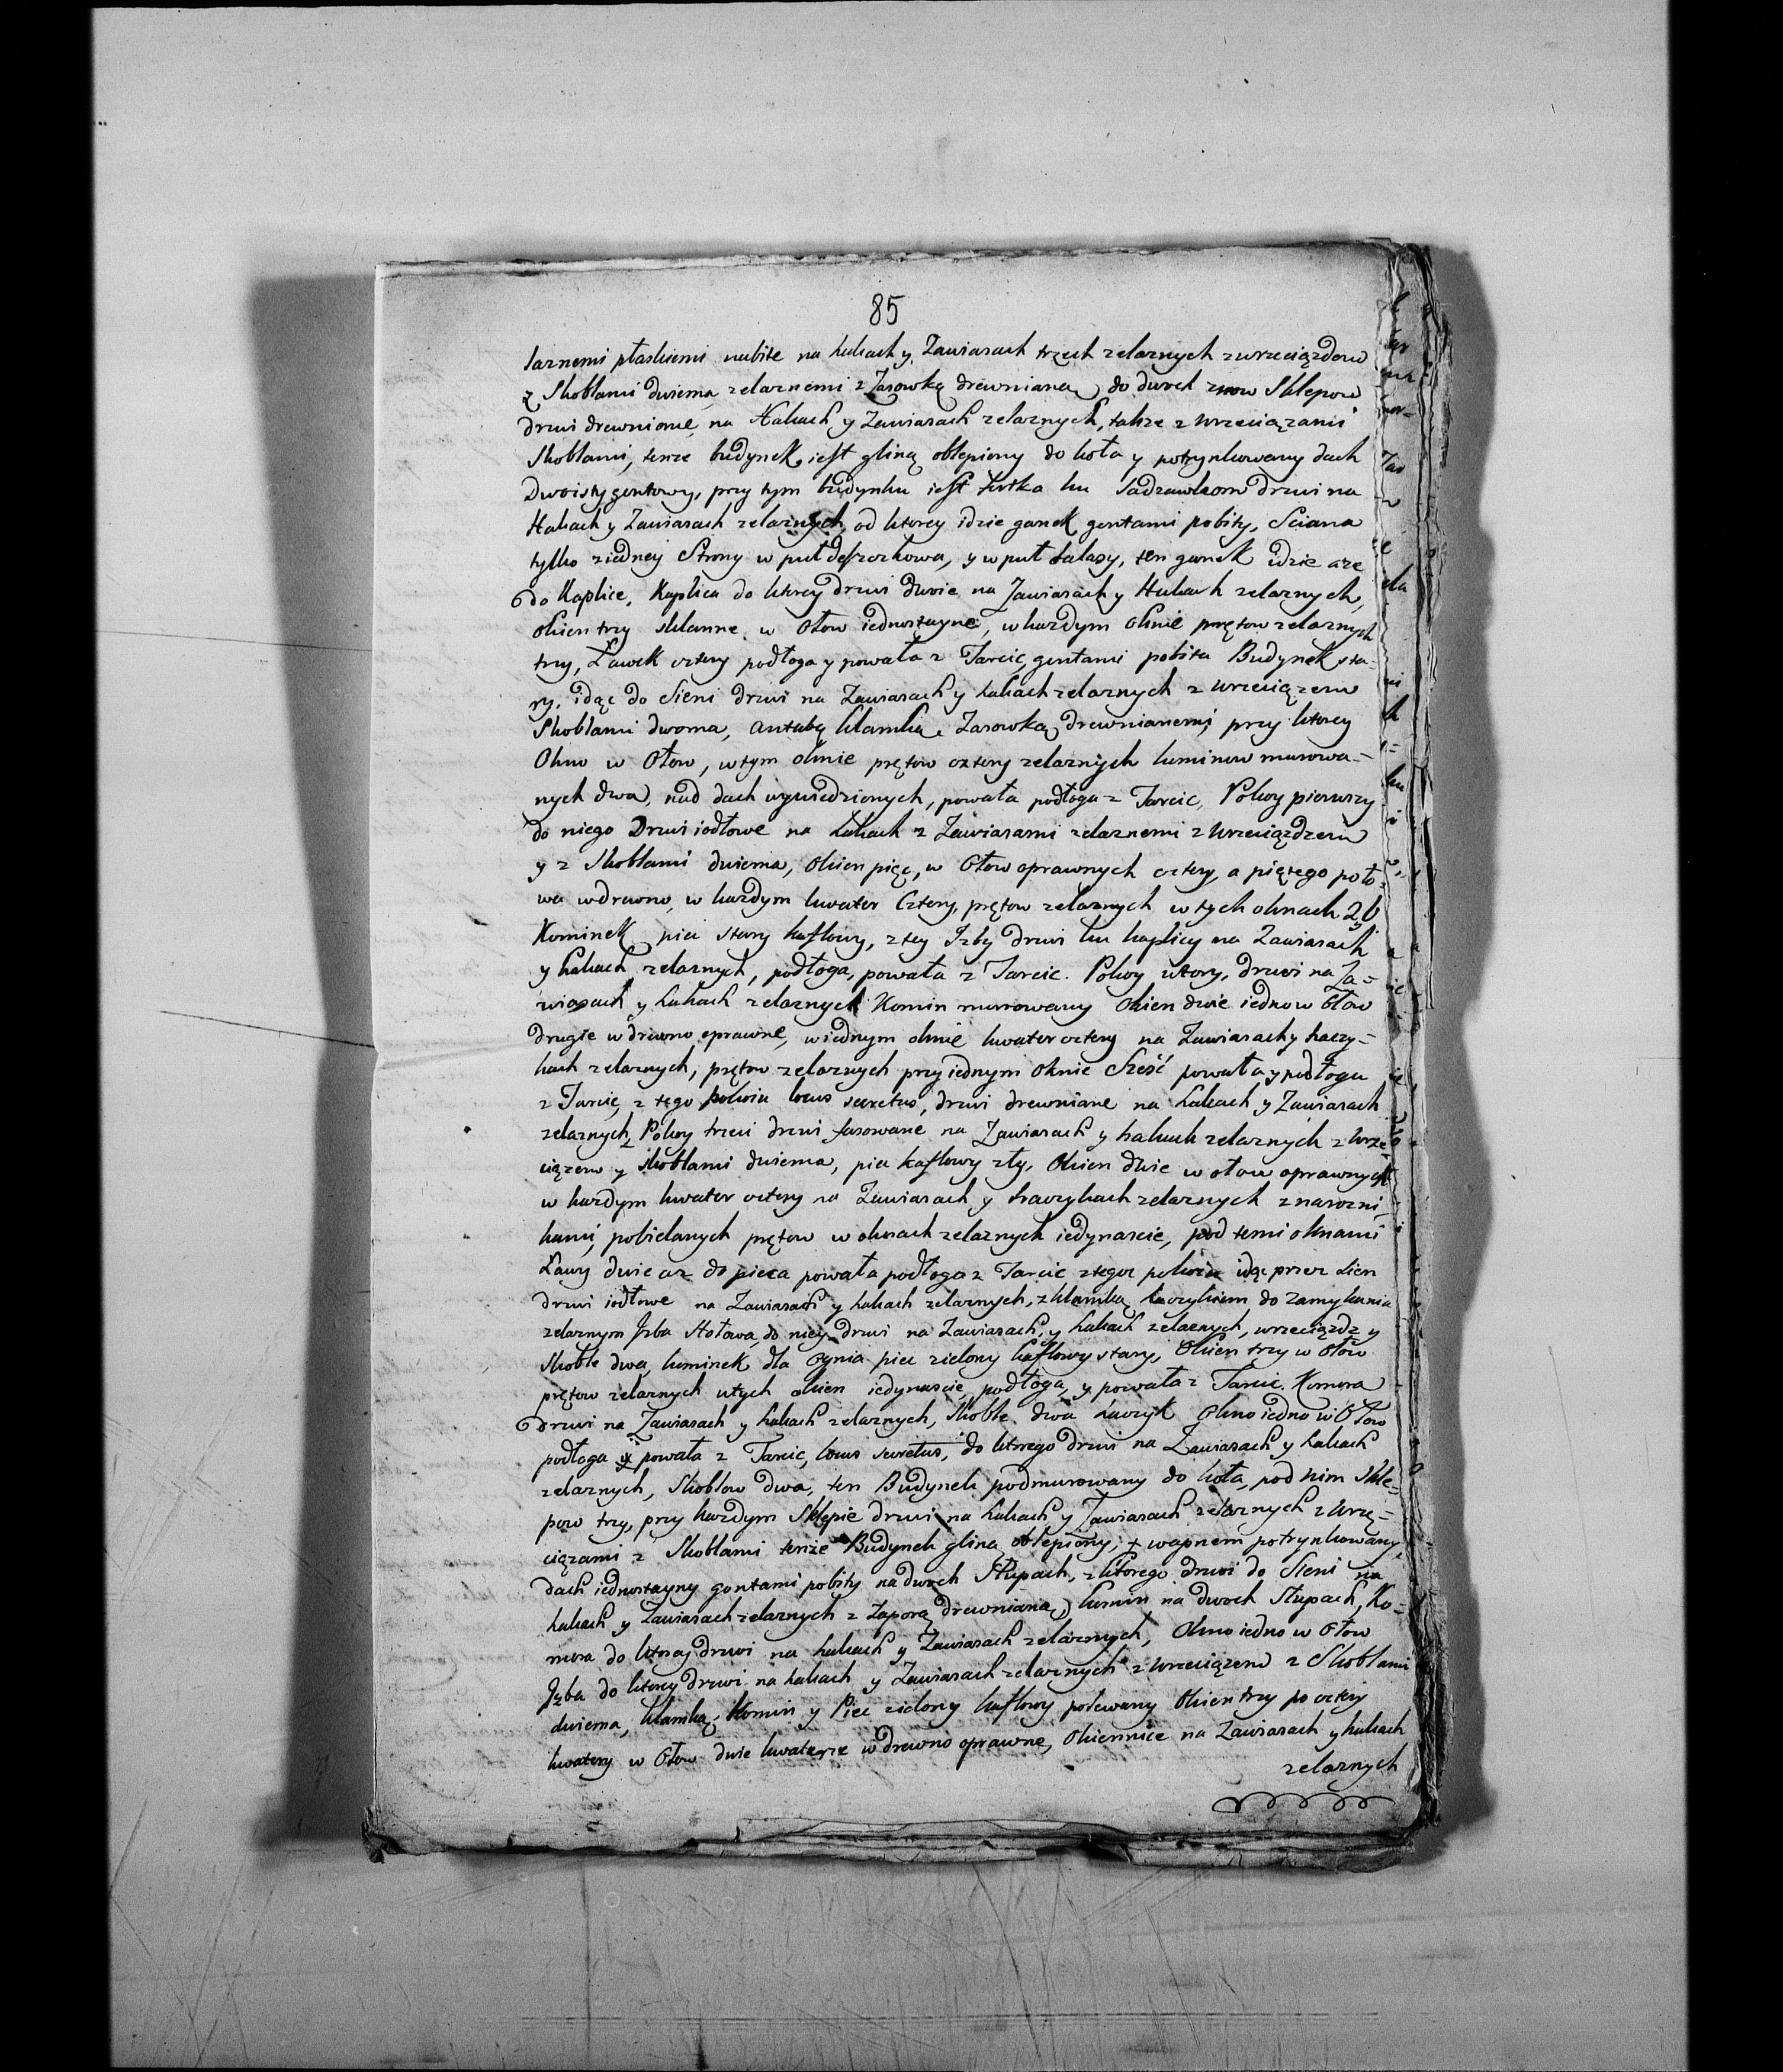 85
laznemi płaskiemi nabite na hakach y Zawiasach trzech zelaznych z wrzeciązdem
z Skoblami dwiema zelaznemi z Zasowką drewnianą, do dwoch znow Sklepow
drzwi drewniane na Hakach y Zawiasach zelaznych, takze z wrzeciązami
Skoblami, tenze budynek iest gliną oblepiony do koła y potrynkowany dach
Dwoisty gontowy, przy tym budynku iest furtka ku Sadzawkom drzwi na
Hakach y Zawiasach zelaznych, od ktorey idzie ganek gontami pobity, Sciana
tylko z iedney Strony w puł deszczkowa, y w puł balasy, ten ganek idzie aze
do Kaplice, Kaplica do ktorey drzwi dwie na Zawiasach y Hakach zelaznych,
okien trzy sklanne w Ołow iednostayne, w kazdym oknie prętow zelaznych
trzy, Ławek cztery podłoga y powała z Tarcic, gontami pobita Budynek sta-
ry, idąc do Sieni drzwi na Zawiasach y hakach zelaznych z wrzeciązem
Skoblami dwoma, antabą klamką, Zasowką drewnianemi, przy ktorey
Okno w Ołow, w tym oknie prętow cztery zelaznych kuminow murowa-
nych dwa, nad dach wywiedzionych, powała podłoga z Tarcic, Pokoy pierwszy
do niego Drzwi iodłowe na hakach z Zawiasami zelaznemi z wrzeciązdzem
y z Skoblami dwiema, Okien pięc, w Ołow oprawnych cztery, a piątego poło-
wa w drewno, w kazdym kwater Cztery, prętow zelaznych w tych oknach 26
Kominek piec stary kaflowy, z tey Izby drzwi ku kaplicy na Zawiasach
y hakach zelaznych, podłoga, powała z Tarcic. Pokoy wtory, drzwi na Za-
wiasach y hakach zelaznych Komin murowany Okien dwie iedno w Ołow
drugie w drewno oprawne, w iednym oknie kwater cztery na Zawiasach y haczy-
kach zelaznych, prętow zelaznych przy iednym oknie Sześć powała y podłoga
z Tarcic, z tego pokoiu locus secretus, drzwi drewniane na hakach y Zawiasach
zelaznych, Pokoy trzeci drzwi fasowane na Zawiasach y hakach zelaznych z wrze-
ciązem y Skoblami dwiema, piec kaflowy zły, Okien dwie w ołow oprawnych
w kazdym kwater cztery na Zawiasach y haczykach zelaznych z narozni-
kami, pobielanych prętow w oknach zelaznych iedynascie, pod temi oknami
Ławy dwie az do pieca powała podłoga z Tarcic z tegoz pokoiu idąc przez Sien
drzwi iodłowe na Zawiasach y hakach zelaznych, z klamką haczykiem do zamykania
zelaznym Izba Stołowa, do niey drzwi na Zawiasach, y hakach zelaznych, wrzeciądz y
Skoble dwa, kuminek dla Ognia piec zielony kaflowy stary, Okien trzy w Ołow
prętow zelaznych u tych okien iedynascie, podłoga, y powała z Tarcic. Komora
drzwi na Zawiasach y hakach zelaznych, Skoble dwa haczyk Okno iedno w Ołow
podłoga y powała z Tarcic, locus secretus, do ktorego drzwi na Zawiasach y hakach
zelaznych, Skoblow dwa, ten Budynek podmurowany do koła, pod nim Skle-
pow trzy, przy kazdym Sklepie drzwi na hakach y Zawiasach zelaznych z wrze-
ciązami z Skoblami tenże Budynek gliną oblepiony, y wapnem potrynkowany
dach iednostayny gontami pobity na dwoch Słupach, z ktorego drzwi do Sieni na
hakach y Zawiasach zelaznych z Zaporą drewnianą kumin na dwoch Słupach, Ko-
mora do ktorey drzwi na hakach y Zawiasach zelaznych, Okno iedno w Ołow
Jzba do ktorey drzwi na hakach y Zawiasach zelaznych z wrzeciązem z Skoblami
dwiema, klamką, Komin y Piec zielony kaflowy polewany Okien trzy po cztery
kwatery w Ołow dwie kwaterze w drewno oprawne, Okiennice na Zawiasach y hakach
zelaznych